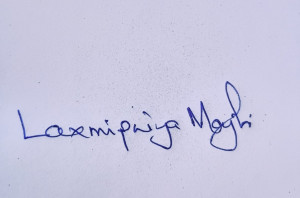 Laxmipriya Majhi